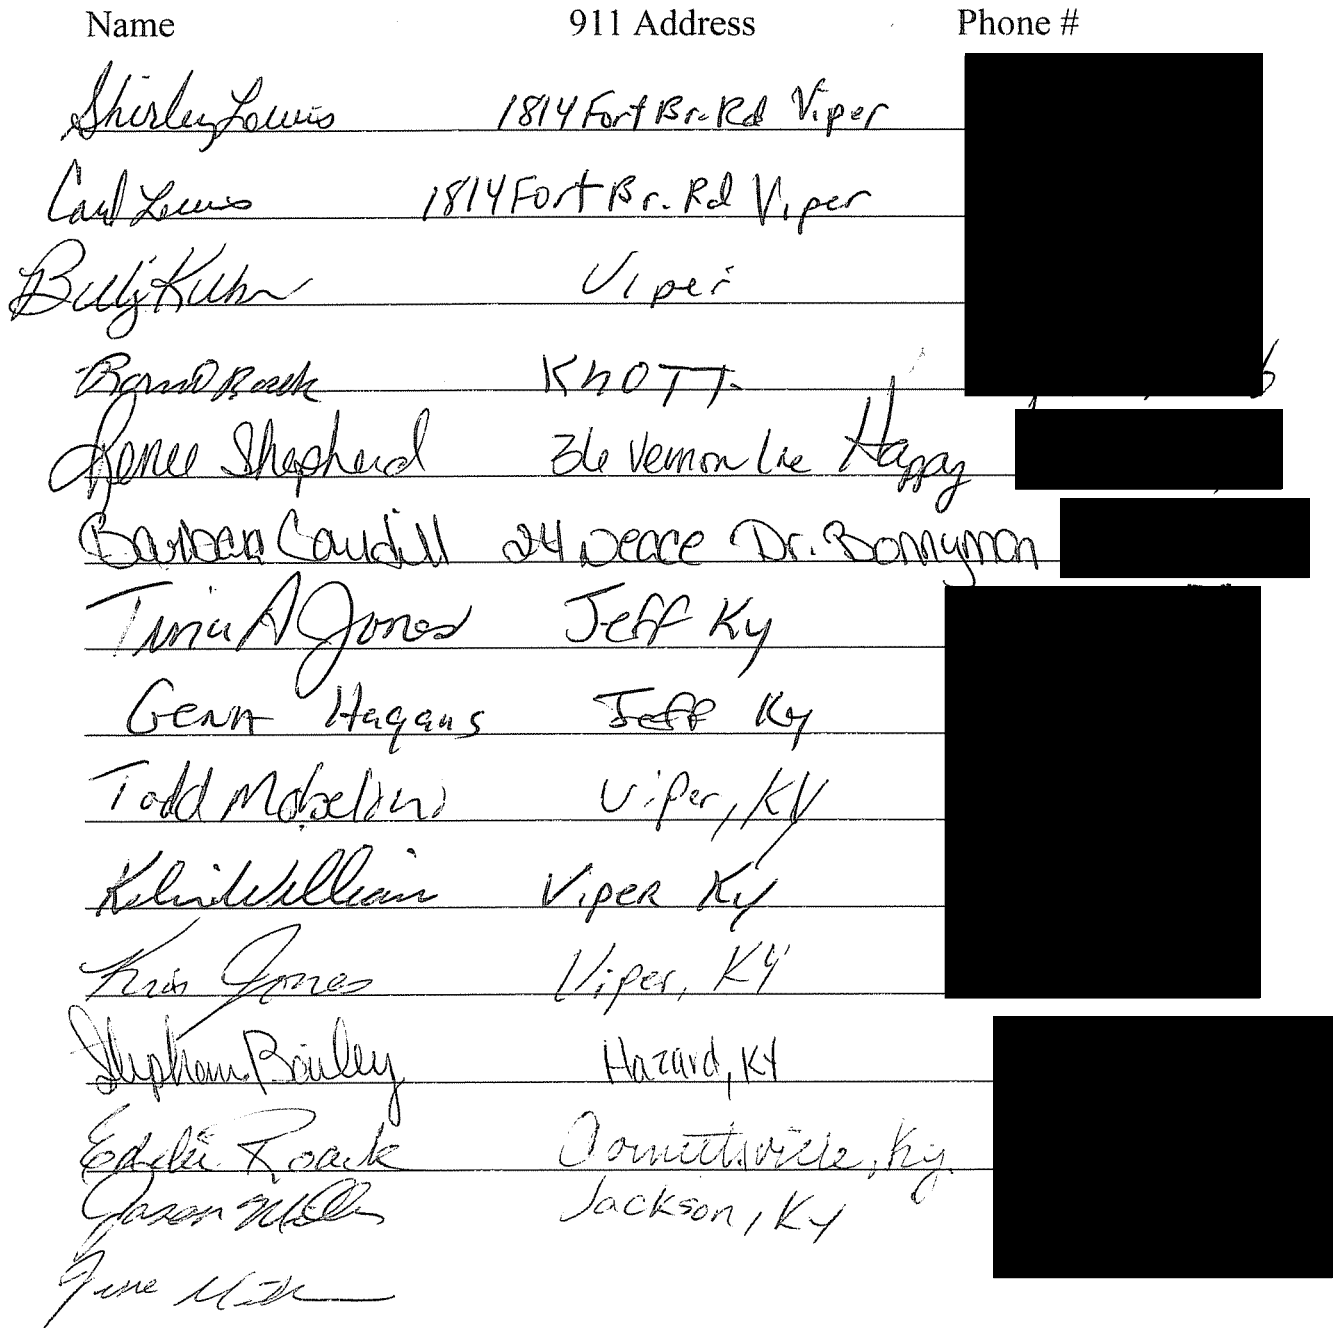 Name 911 Address Phone #
Shirley Lewis 1814 Fort Br. Rd Viper
Carl Lewis 1814 Fort Br. Rd Viper
Billy Viper
KnOTT.
Renee Shepherd 36 Vernon Lne Happy
Barbara Caudill 24 Deace Dr. Bonnyman
Tina A Jones Jeff Ky
Gena Hagans Jeff Ky
Todd Viper, KY
Viper Ky
Kris Jones Viper, KY
Bailey Hazard, KY
Eddie Roark Cornettsville, Ky.
Jason Miller Jackson, Ky